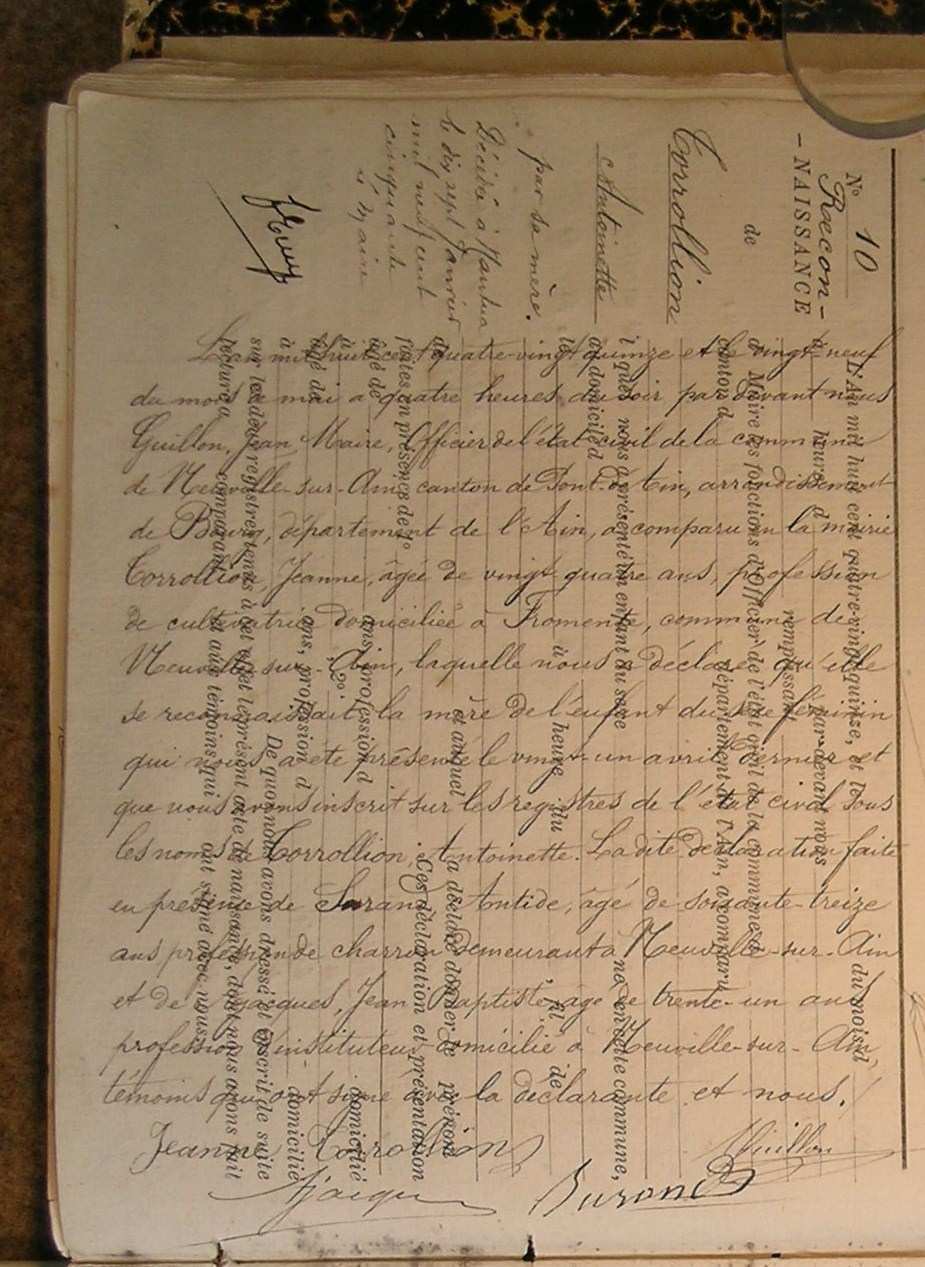 N° 10
Recon-
- NAISSANCE
de
Corrollion
Antoinette
par sa mère.
Décédée à Nantua
le dix sept janvier
mil neuf cent
cinquante
L'an mil huit cent quatre-vingt quinze et le vingt-neuf
du mois de mai à quatre heures du soir par devant nous
Guillon, Jean Maire, Officier de l'état civil de la commune
de Neuville-sur-Ain canton de Pont-d'Ain, arrondissement
de Bourg, département de l'Ain, a comparu en la mairie
Corrollion, Jeanne, âgée de vingt quatre ans, profession
de cultivatrice domiciliée à Fromente, commune de
Neuville-sur-Ain, laquelle nous a déclaré qu'elle
se reconnaissait la mère de l'enfant du sexe féminin
qui nous a été présenté le vingt-un avril dernier et
que nous avons inscrit sur les registres de l'état civil sous
les noms de Corrollion, Antoinette. La dite déclaration faite
en présence de Antide, âgé de soixante-treize
ans profession de charron demeurant à Neuville-sur-Ain
et de Jacques, Jean Baptiste âgé de trente-un ans
profession d'instituteur domicilié à Neuville-sur-Ain,
témoins qui ont signé avec la déclarante et nous.
Jeanne Corrollion
Guillon
L'An mil huit cent quatre-vingt-quinze, et le du mois d
à heure d par-devant nous
remplissant
Maire les fonctions d'Officier de l'état civil de la commune d
canton d département de l'Ain, a comparu
lequel nous a présenté un enfant du sexe né en cette commune,
a domicile d
le à heure du , fil de
de et auquel a déclaré donner le prénom
Ces déclaration et présentation
faites en présence de 1°
âgé de ans, profession d domicilié
à 2°
âgé de ans, profession d domicilié
à De quoi nous avons dressé et inscrit de suite
sur les deux registres tenus à cet effet le présent acte de naissance, dont nous avons fait
lecture a comparant et aux témoins qui ont signé avec nous.